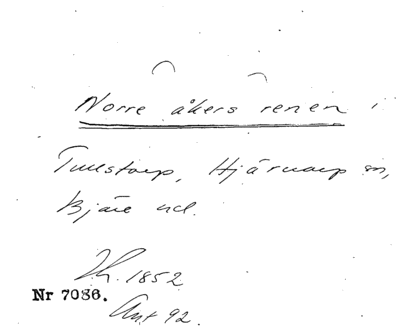 Norre åkers renen
Tullstorp, Hjärnarp sn,
Bjäre hd.
1852
Nr 7086.
Ant 92.